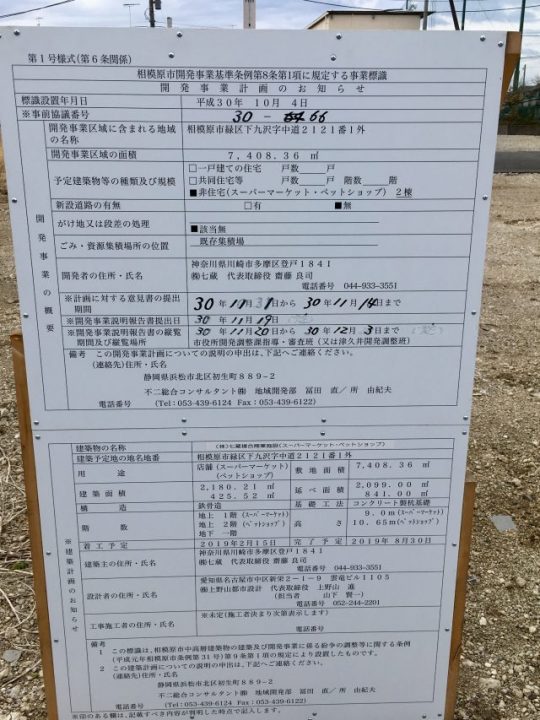 第1号様式(第6条関係)
相模原市開発事業基準条例第8条第1項に規定する事業標識
開発事業計画のお知らせ
標識設置年月日 平成30年 10月 4日
※事前協議番号 30 - 66
開発事業の概要
開発事業区域に含まれる地域の名称 相模原市緑区下九沢字中道2121番1外
開発事業区域の面積 7,408.36 ㎡
予定建築物等の種類及び規模 □一戸建ての住宅 戸数 戸
□共同住宅等 戸数 戸 階数 階
■非住宅(スーパーマーケット・ペットショップ) 2棟
新設道路の有無 □有 ■無
がけ地又は段差の処理 ■該当無
ごみ・資源集積場所の位置 既存集積場
開発者の住所・氏名 神奈川県川崎市多摩区登戸1841
㈱七蔵 代表取締役 齋藤 良司
電話番号 044-933-3551
※計画に対する意見書の提出期間 30年11月 日から 30年11月14日まで
※開発事業説明報告書提出日 30年11月19日
※開発事業説明報告書の縦覧期間及び縦覧場所 30年11月20日から 30年12月3日まで
市役所開発調整課指導・審査班(又は津久井開発調整班)
備考 この開発事業計画についての説明の申出は、下記へご連絡ください。
(連絡先)住所・氏名
静岡県浜松市北区初生町889-2
不二総合コンサルタント㈱ 地域開発部 冨田 直/所 由紀夫
電話番号 (Tel:053-439-6124 Fax:053-439-6122)
※建築計画のお知らせ
建築物の名称 (株)七蔵複合商業施設(スーパーマーケット・ペットショップ)
建築予定地の地名地番 相模原市緑区下九沢字中道2121番1外
用途 店舗(スーパーマーケット)
(ペットショップ)
敷地面積 7,408.36 ㎡
建築面積 2,180.21 ㎡
425.52 ㎡
延べ面積 2,099.00 ㎡
841.00 ㎡
構造 鉄骨造 基礎工法 コンクリート製杭基礎
階数 地上 1階(スーパーマーケット)
地上 2階(ペットショップ)
地下 一階
高さ 9.0m(スーパーマーケット)
10.65m(ペットショップ)
着工予定 2019年2月15日 完了予定 2019年8月30日
建築主の住所・氏名 神奈川県川崎市多摩区登戸1841
㈱七蔵 代表取締役 齋藤 良司
電話番号 044-933-3551
設計者の住所・氏名 愛知県名古屋市中区新栄2-1-9 雲竜ビル1105
㈱上野山都市設計 代表取締役 上野山 進
(担当者 山下 賢一)
電話番号 052-244-2201
工事施工者の住所・氏名 ※未定(施工者決まり次第表示します)
電話番号
備考
1 この標識は、相模原市中高層建築物の建築及び開発事業に係る紛争の調整等に関する条例
(平成元年相模原市条例第31号)第9条第1項の規定により設置したものです。
2 この建築計画についての説明の申出は、下記へご連絡ください。
(連絡先)住所・氏名
静岡県浜松市北区初生町889-2
不二総合コンサルタント㈱ 地域開発部 冨田 直/所 由紀夫
電話番号 (Tel:053-439-6124 Fax:053-439-6122)
※印のある欄は、記載すべき内容が判明した時点で記入します。